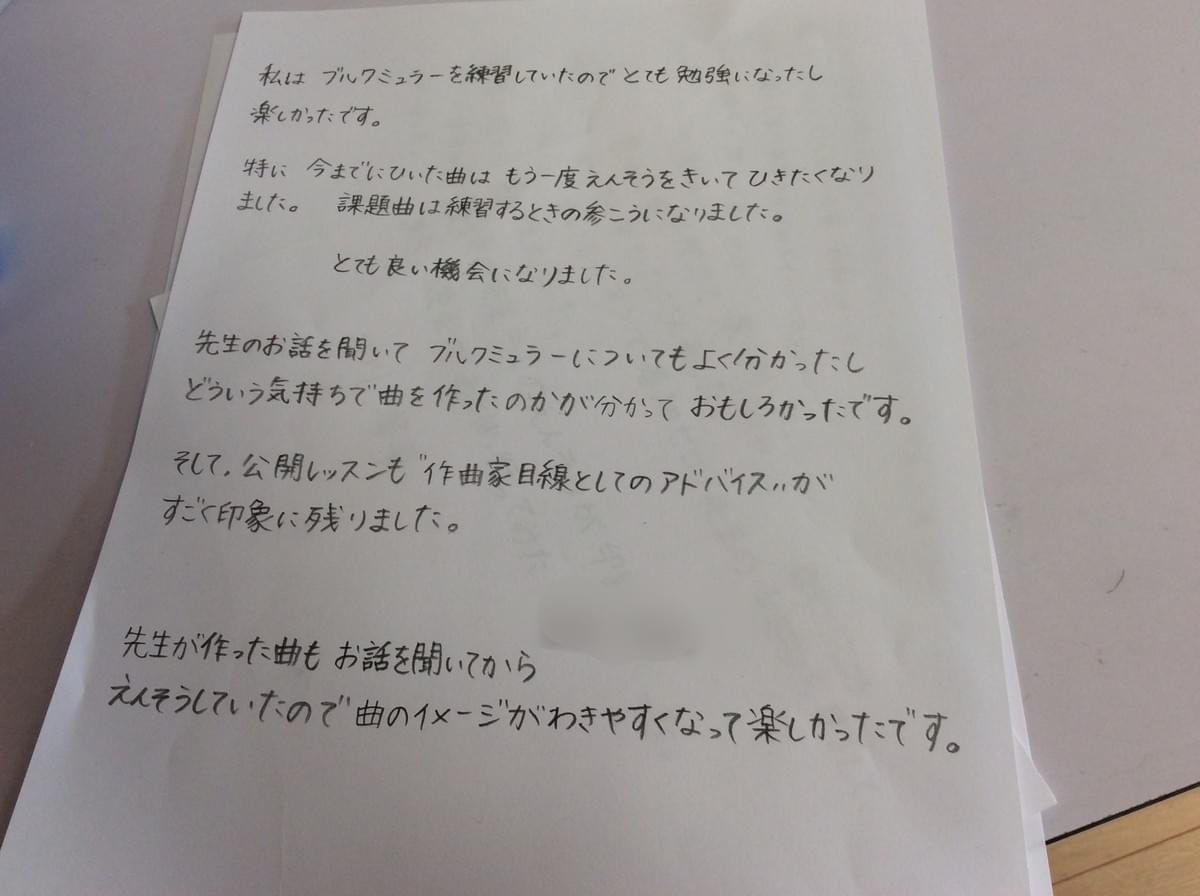 私は ブルクミュラーを練習していたので とても 勉強になったし
楽しかったです。
特に 今までにひいた曲は もう一度えんそうをきいて ひきたくなり
ました。 課題曲は練習するときの参こうになりました。
とても良い機会になりました。
先生のお話を聞いて ブルクミュラーについてもよく分かったし
どういう気持ちで曲を作ったのかが分かって おもしろかったです。
そして、公開レッスンも〝作曲家目線としてのアドバイス〟が
すごく印象に残りました。
先生が作った曲も お話を聞いてから
えんそうしていたので 曲のイメージがわきやすくなって楽しかったです。